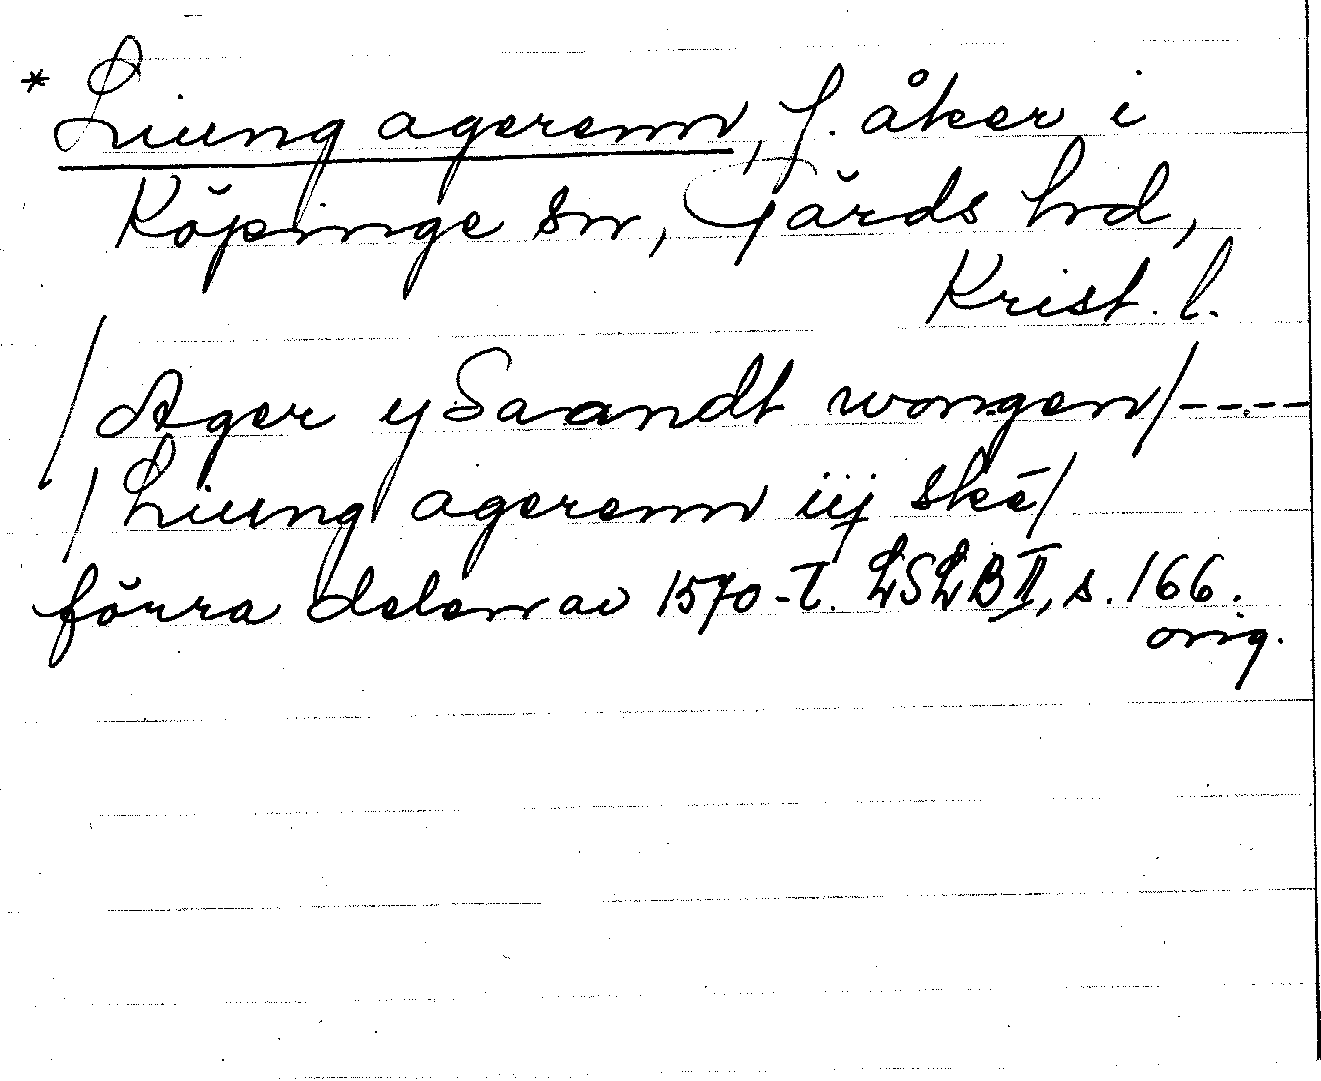 * Liung agerenn, f. åker i
Köpinge sn, Gärds hrd,
Krist. l.
/Ager y Saandt wongen/----
/Liung agerenn iij skē/
förra delen av 1570-t. LSLB II, s. 166.
orig.